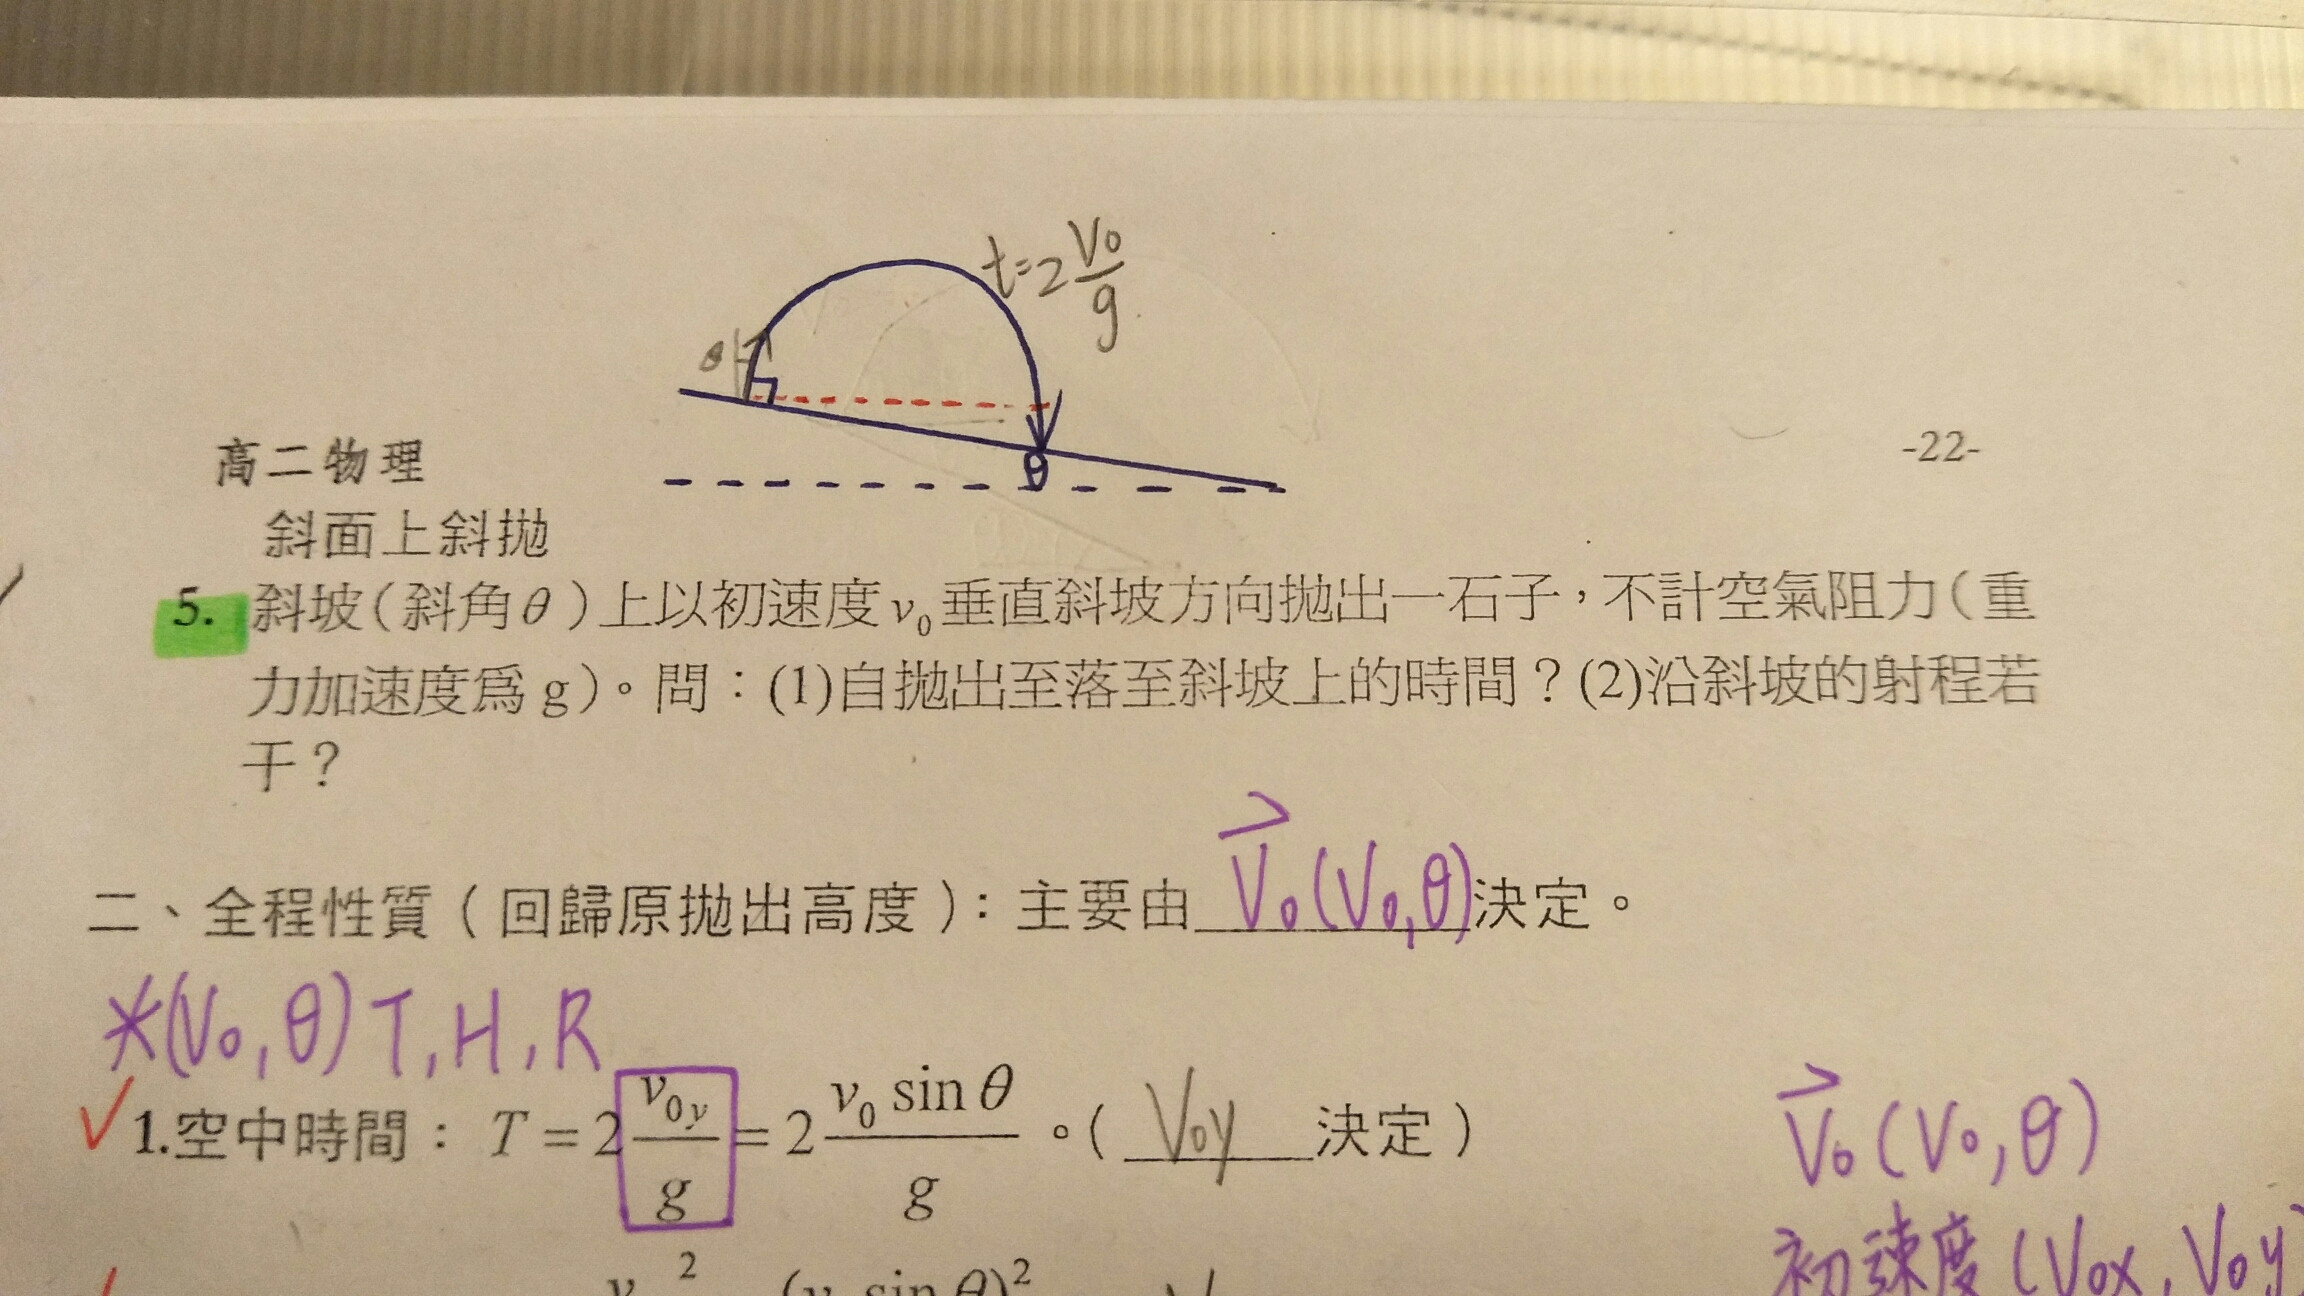 t=2 V₀/g
θ
θ
高二物理
-22-
斜面上斜拋
5. 斜坡(斜角θ)上以初速度v₀垂直斜坡方向拋出一石子,不計空氣阻力(重
力加速度爲g)。問:(1)自拋出至落至斜坡上的時間?(2)沿斜坡的射程若
干?
二、全程性質(回歸原拋出高度):主要由 V₀(V₀,θ)決定。
*(V₀,θ)T,H,R
✓1.空中時間: T=2 v₀y/g = 2 v₀ sin θ/g 。( V₀y 決定)
V₀(V₀,θ)
初速度(V₀x,V₀y)